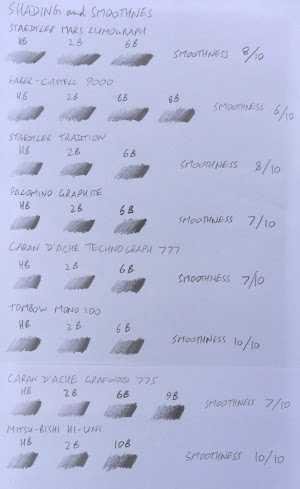 SHADING and SMOOTHNES
STAEDTLER MARS LUMOGRAPH
HB 2B 6B
SMOOTHNESS 8/10
FABER-CASTELL 9000
HB 2B 6B 8B
SMOOTHNESS 6/10
STAEDTLER TRADITION
HB 2B 6B
SMOOTHNESS 8/10
PALOMINO GRAPHITE
HB 2B 6B
SMOOTHNESS 7/10
CARAN D'ACHE TECHNOGRAPH 777
HB 2B 6B
SMOOTHNESS 7/10
TOMBOW MONO 100
HB 2B 6B
SMOOTHNESS 10/10
CARAN D'ACHE GRAFWOOD 775
HB 2B 6B 9B
SMOOTHNESS 7/10
MITSU-BISHI HI-UNI
HB 2B 10B
SMOOTHNESS 10/10